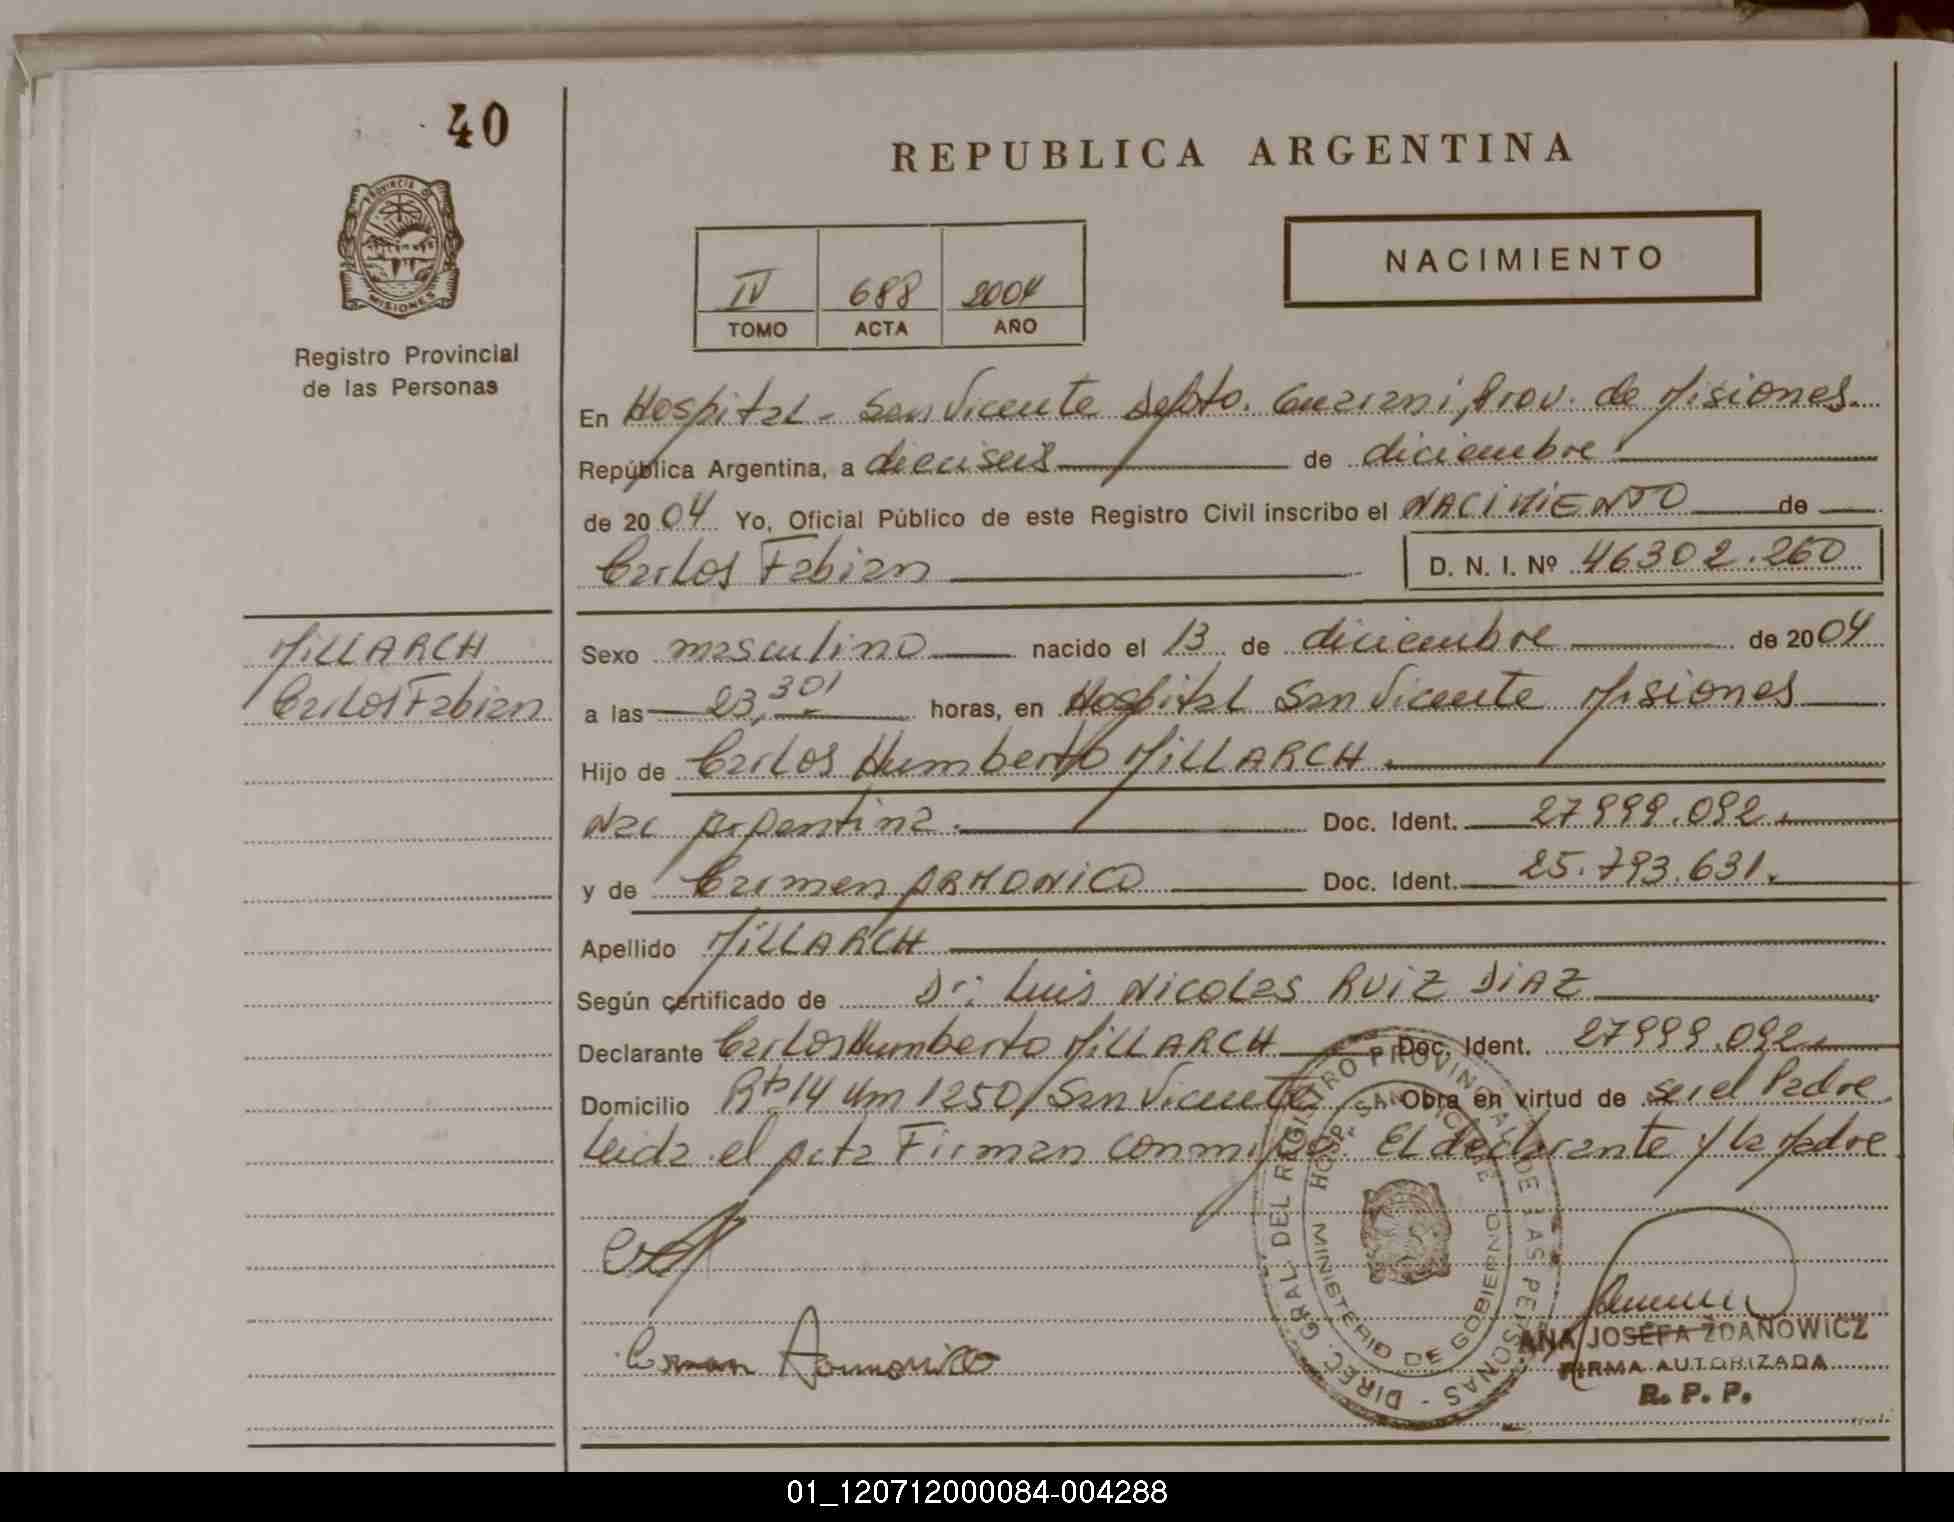 40
REPUBLICA ARGENTINA
PROVINCIA DE
MISIONES
Registro Provincial
de las Personas
NACIMIENTO
IV 688 2004
TOMO ACTA AÑO
En Hospital - San Vicente Depto. Guarani, Prov. de Misiones.
República Argentina, a dieciseis de diciembre
de 2004 Yo, Oficial Público de este Registro Civil inscribo el NACIMIENTO de
Carlos Fabian D. N. I. Nº 46302.260
MILLARCH
Carlos Fabian
Sexo masculino nacido el 13 de diciembre de 2004
a las 23,30' horas, en Hospital San Vicente Misiones
Hijo de Carlos Humberto MILLARCH
Nac Argentina. Doc. Ident. 27999.092.
y de Carmen ARMONICO Doc. Ident. 25.793.631.
Apellido MILLARCH
Según certificado de Dr: Luis Nicolas RUIZ DIAZ
Declarante Carlos Humberto MILLARCH Doc. Ident. 27999.092.
Domicilio Rta 14 Km 1250, San Vicente Obra en virtud de ser el Padre
Leida el acta Firman conmigo. El declarante y la Madre
DIREC. GRAL. DEL REGISTRO PROVINCIAL DE LAS PERSONAS -
HOSP. SAN VICENTE
MINISTERIO DE GOBIERNO
Carmen Armonico
ANA JOSEFA ZDANOWICZ
FIRMA AUTORIZADA
R. P. P.
01_120712000084-004288